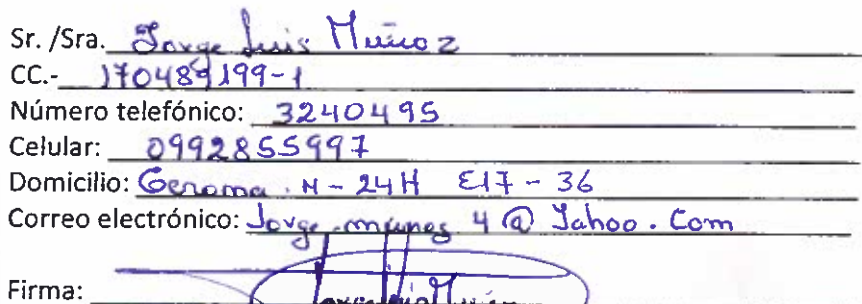 Sr. /Sra. Jorge Luis Muñoz
CC.- 170489199-1
Número telefónico: 3240495
Celular: 0992855997
Domicilio: Gerona N-24H E17-36
Correo electrónico: Jorge.munos 4 @ Yahoo.Com
Firma: